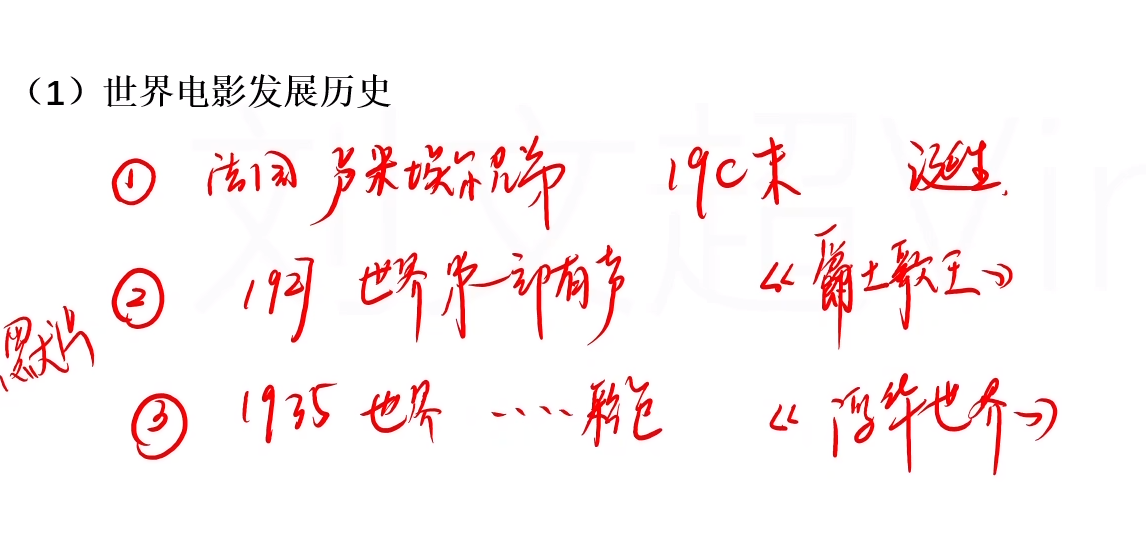 （1）世界电影发展历史
① 法国卢米埃尔兄弟 19C末 诞生
② 1927 世界第一部有声 《爵士歌王》
默片
③ 1935 世界 ····彩色 《浮华世界》
刘文超Vin